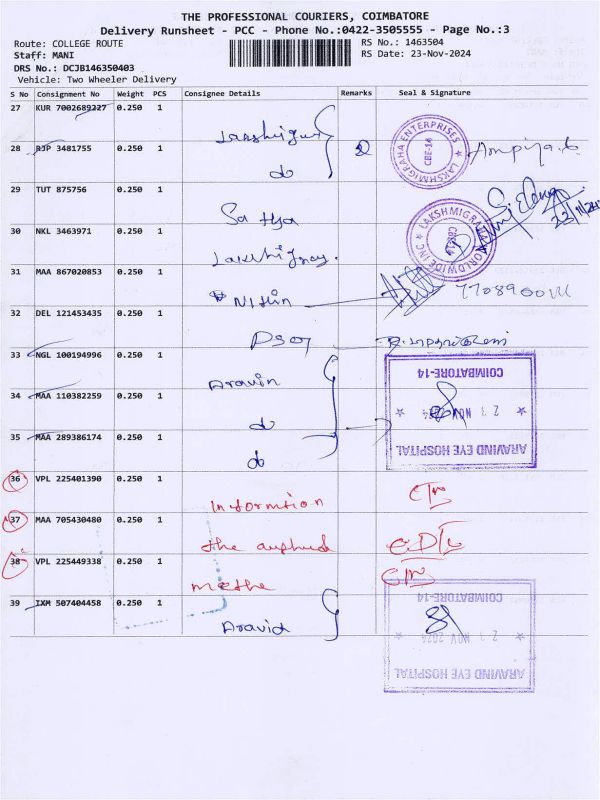 THE PROFESSIONAL COURIERS, COIMBATORE
Delivery Runsheet - PCC - Phone No.:0422-3505555 - Page No.:3
Route: COLLEGE ROUTE
RS No.: 1463504
Staff: MANI
RS Date: 23-Nov-2024
DRS No.: DCJB146350403
Vehicle: Two Wheeler Delivery
S No Consignment No Weight PCS Consignee Details Remarks Seal & Signature
27 KUR 7002689227 0.250 1
LAKSHMIGRAHA ENTERPRISES
CBE-14
28 RJP 3481755 0.250 1
do
29 TUT 875756 0.250 1
Sathya
LAKSHMIGRAHA WORLDWIDE INC
30 NKL 3463971 0.250 1
31 MAA 867020853 0.250 1
Nithin
32 DEL 121453435 0.250 1
33 NGL 100194996 0.250 1
Aravin
COIMBATORE-14
34 MAA 110382259 0.250 1
do
23 NOV 2024
35 MAA 289386174 0.250 1
do
ARAVIND EYE HOSPITAL
36 VPL 225401390 0.250 1
Informtion
37 MAA 705430480 0.250 1
the
38 VPL 225449338 0.250 1
COIMBATORE-14
39 IXM 507404458 0.250 1
Aravid
23 NOV 2024
ARAVIND EYE HOSPITAL